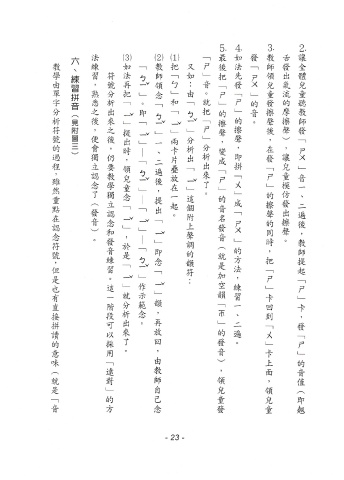 2.讓全體兒童聽教師發「ㄕㄨ」音一、二遍後，教師提起「ㄕ」卡，發「ㄕ」的音值（即翹
舌發出氣流的摩擦聲），讓兒童模仿發出擦聲。
3.教師領兒童發擦聲後，在發「ㄕ」的擦聲的同時，把「ㄕ」卡回到「ㄨ」卡上面，領兒童
發「ㄕㄨ」的音。
4.如法先發「ㄕ」的擦聲，即拼「ㄨ」成「ㄕㄨ」的方法，練習一、二遍。
5.最後把「ㄕ」的擦聲，變成「ㄕ」的音名發音（就是加空韻「ㄭ」的發音），領兒童發
「ㄕ」音。就把「ㄕ」分析出來了。
又如：由「ㄅˇ」分析出「ˇ」這個附上聲調的韻符：
(1)把「ㄅ」和「ˇ」兩卡片疊放在一起。
(2)教師領念「ㄅˇ」一、二遍後，提出「ˇ」即念「ˇ」韻，再放回，由教師自己念
「ㄅˇ」。即「ㄅˇ」—「ˇ」—「ㄅˇ」—「ˇ」作示範念。
(3)如法再把「ˇ」提出時，領兒童念「ˇ」，於是「ˇ」就分析出來了。
符號分析出來之後，仍要教學獨立認念和發音練習。這一階段可以採用「速對」的方
法練習，熟悉之後，便會獨立認念了（發音）。
六、練習拼音（見附圖三）
教學由單字分析符號的過程，雖然重點在認念符號，但是也有直接拼讀的意味（就是「音
- 23 -